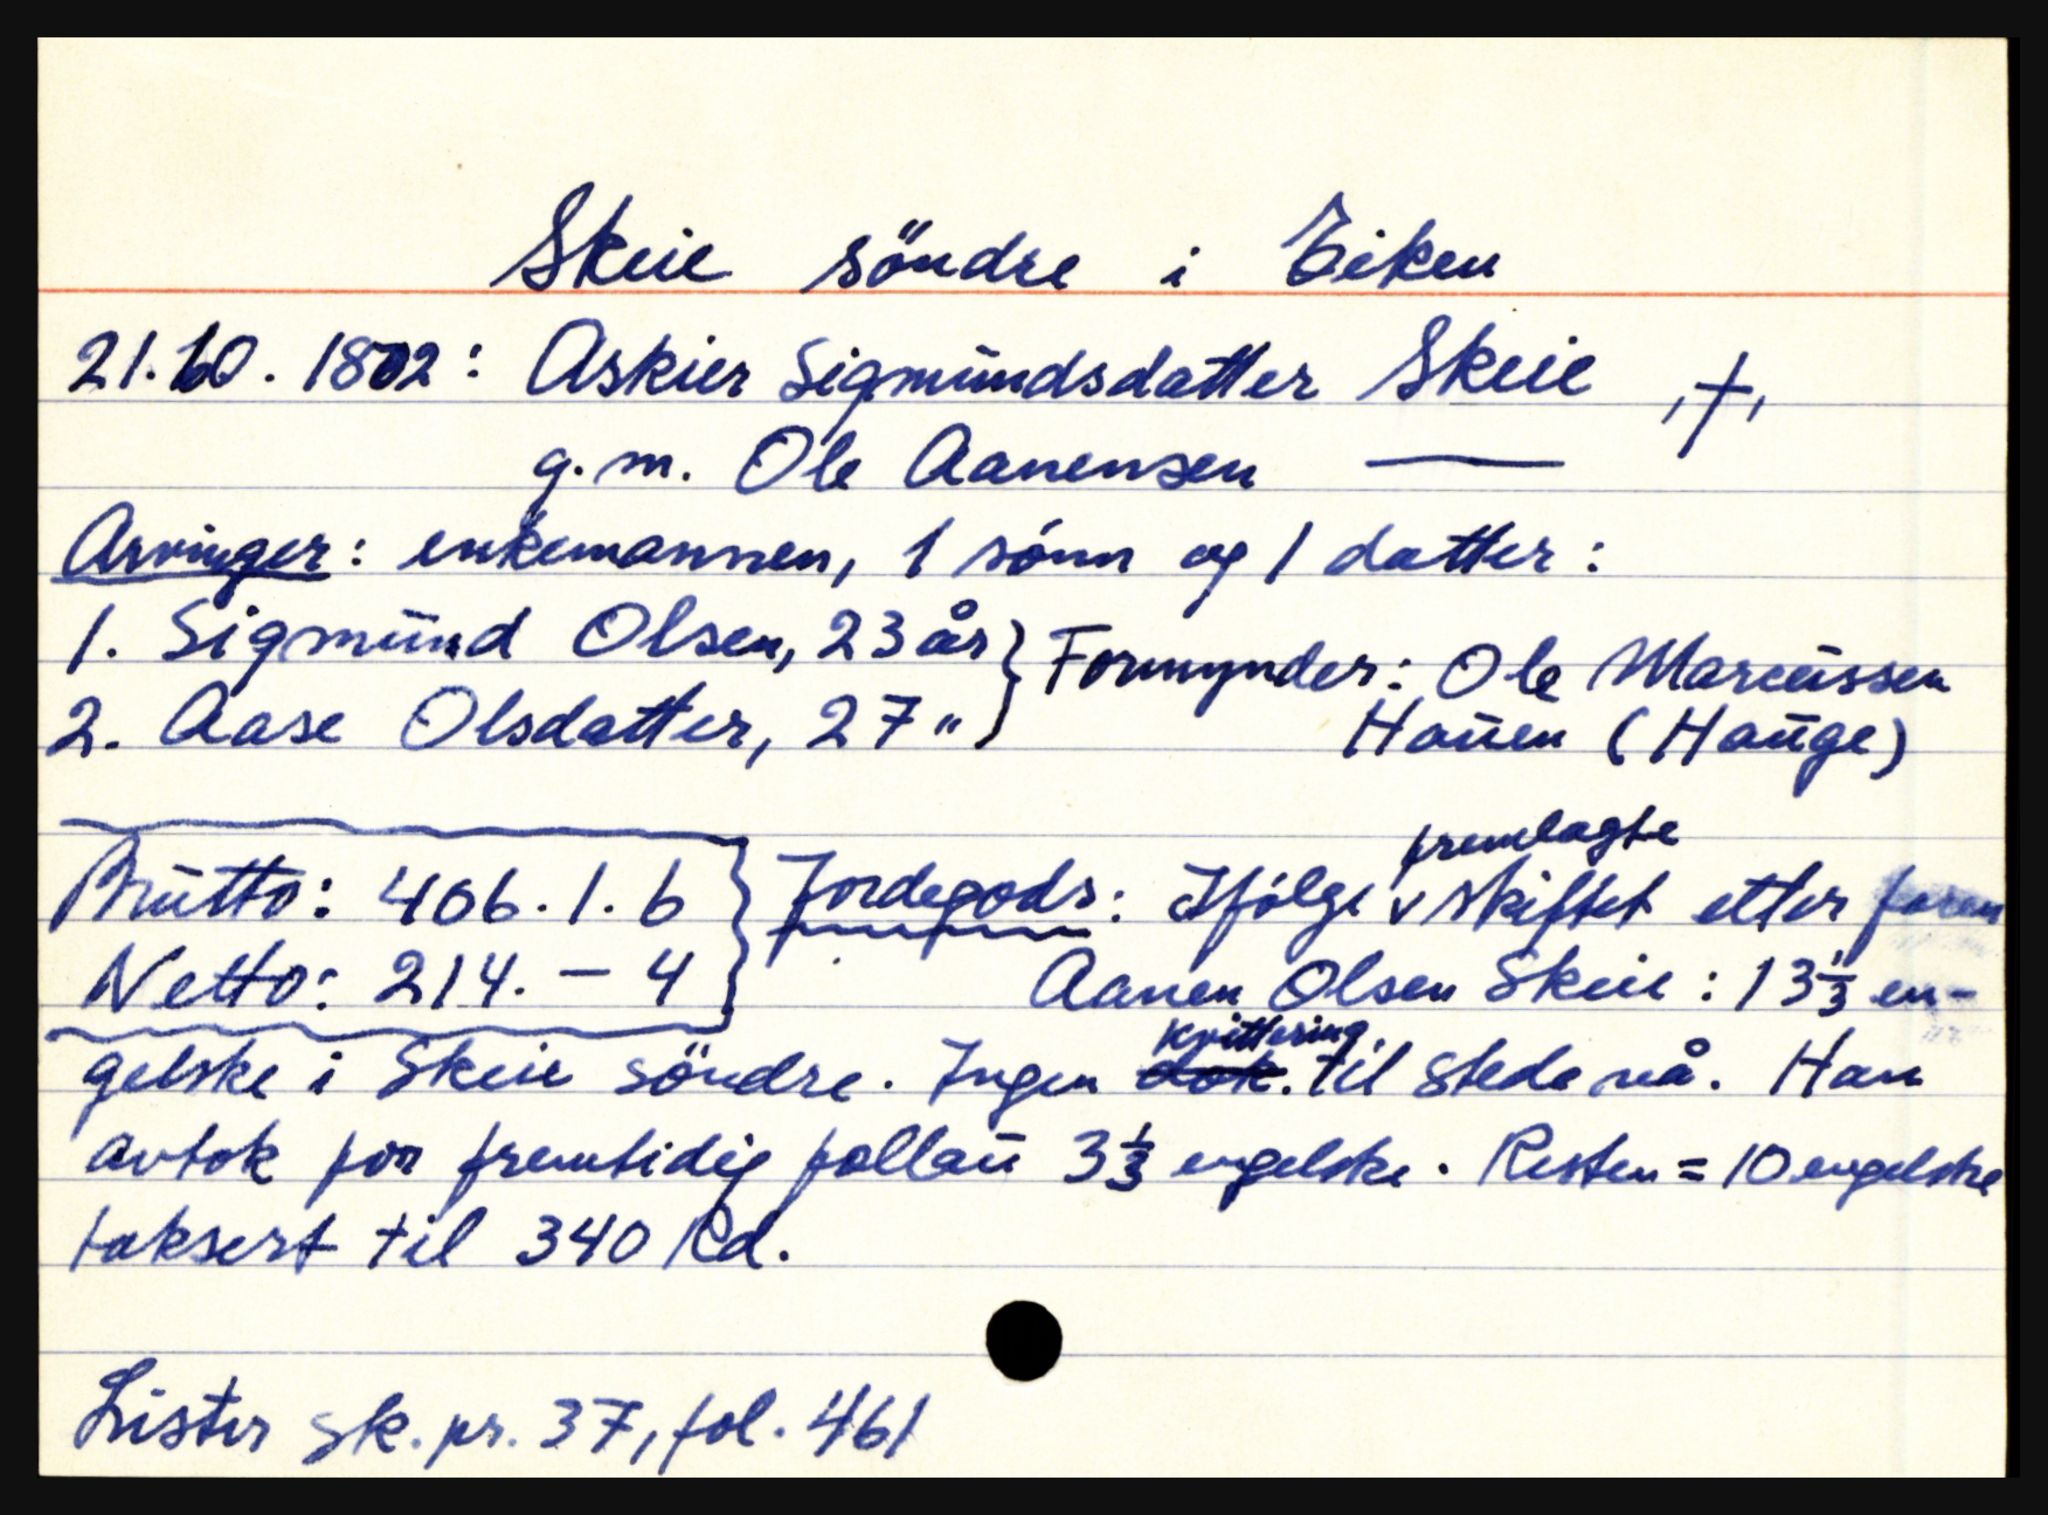 Skeie söndre i Eiken
21.10.1802: Askier Sigmundsdatter Skeie ,†,
g.m. Ole Aanensen ——
Arvinger: enkemannen, 1 sønn og 1 datter:
1. Sigmund Olsen, 23 år } Formynder: Ole Marcussen
2. Aase Olsdatter, 27 " } Hauen (Hauge)
Brutto: 406.1.6 } Jordegods: Ifølge fremlagte skiftet etter
Netto: 214. – 4 } Aanen Olsen Skeie: 13 1/3 en-
gelske i Skeie söndre. Ingen kvittering til stede nå. Han
avtok for fremtidig follau 3 1/3 engelske. Resten = 10 engelske
taksert til 340 Rd.
Lister sk.pr. 37, fol. 461